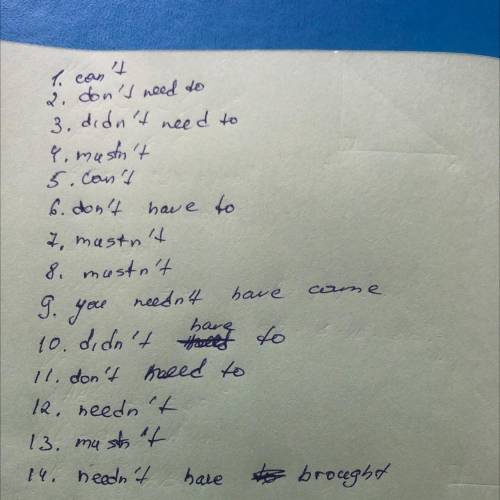 1. can't
2. don't need to
3. didn't need to
4. mustn't
5. can't
6. don't have to
7. mustn't
8. mustn't
9. you needn't have came
10. didn't have to
11. don't need to
12. needn't
13. mustn't
14. needn't have brought